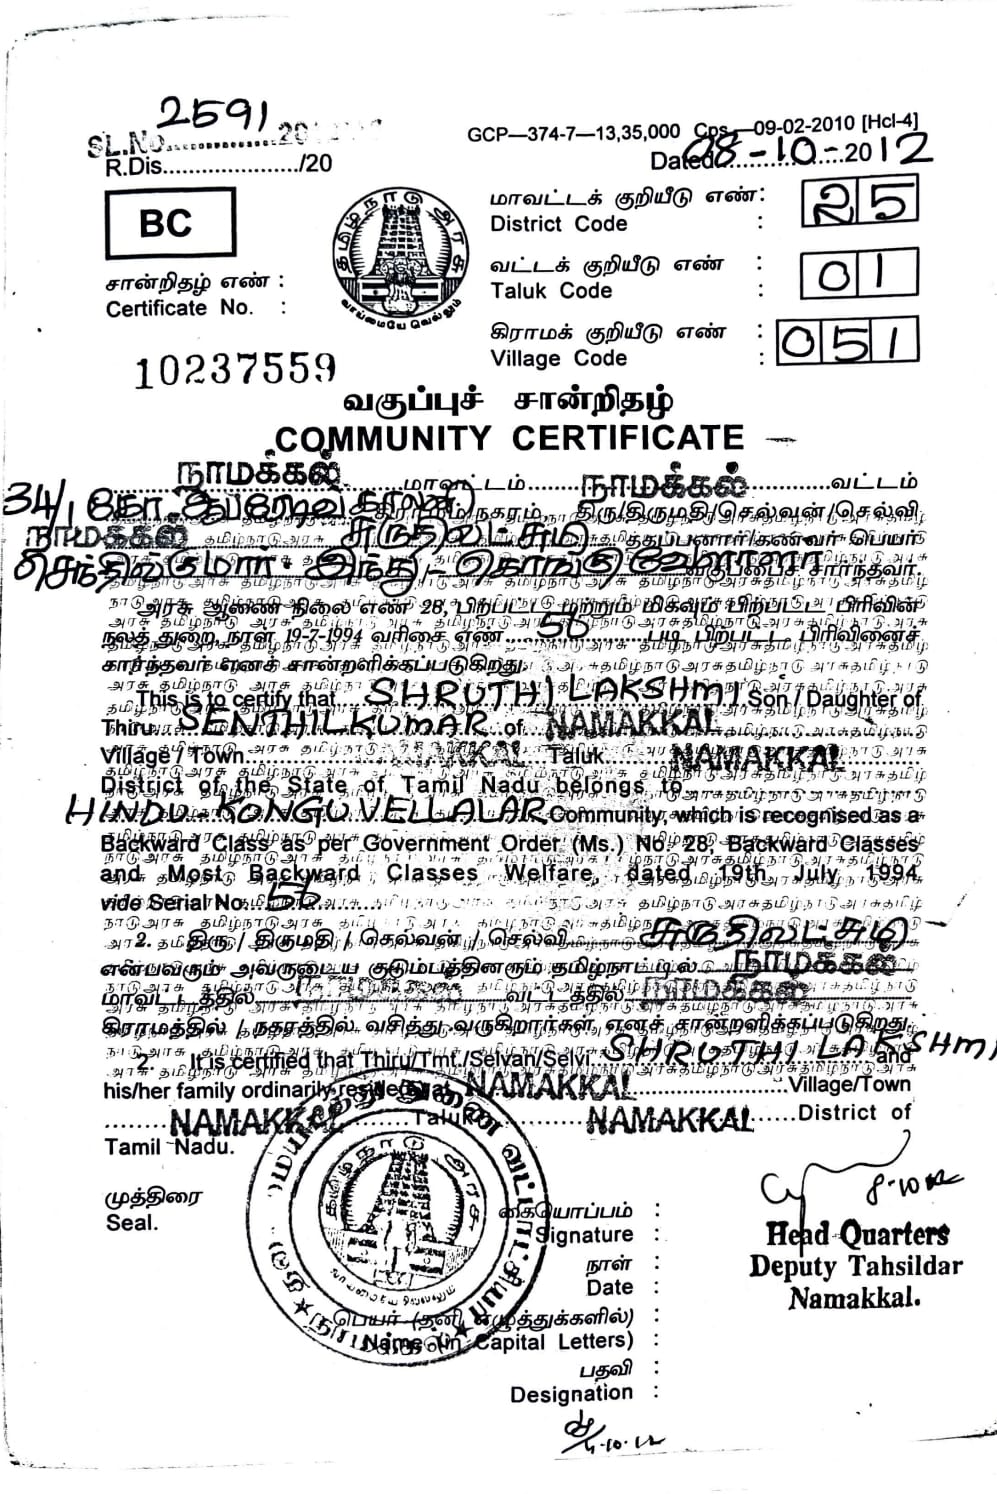 2591
SL.No.............20
GCP—374-7—13,35,000 Cps.—09-02-2010 [Hcl-4]
R.Dis...................../20
Dated 08-10-2012
BC
தமிழ்நாடு அரசு
வாய்மையே வெல்லும்
மாவட்டக் குறியீடு எண் : 25
District Code :
வட்டக் குறியீடு எண் : 01
Taluk Code :
சான்றிதழ் எண் :
Certificate No. :
கிராமக் குறியீடு எண் : 051
Village Code :
10237559
வகுப்புச் சான்றிதழ்
COMMUNITY CERTIFICATE
நாமக்கல் மாவட்டம் நாமக்கல் வட்டம்
34/1 கிராமம்/நகரம், திரு/திருமதி/செல்வன்/செல்வி
நாமக்கல் த்தப்பனார்/கணவர் பெயர்
செந்தில்குமார். இந்து-கொங்கு வேளாளர் வகுப்பைச் சார்ந்தவர்.
அரசு ஆணை நிலை எண் 28, பிற்பட்ட மற்றும் மிகவும் பிற்பட்ட பிரிவின்
நலத் துறை, நாள் 19-7-1994 வரிசை எண் 56 படி பிற்பட்ட பிரிவினைச்
சார்ந்தவர் எனச் சான்றளிக்கப்படுகிறது.
This is to certify that SHRUTHI LAKSHMI Son / Daughter of
Thiru SENTHILKUMAR of NAMAKKAL
Village / Town NAMAKKAL Taluk NAMAKKAL
District of the State of Tamil Nadu belongs to
HINDU-KONGU VELLALAR Community, which is recognised as a
Backward Class as per Government Order (Ms.) No. 28, Backward Classes
and Most Backward Classes Welfare, dated 19th July 1994
vide Serial No. 56
2. திரு / திருமதி / செல்வன் / செல்வி
என்பவரும் அவருடைய குடும்பத்தினரும் தமிழ்நாட்டில் நாமக்கல்
மாவட்டத்தில் வட்டத்தில் நாமக்கல்
கிராமத்தில் / நகரத்தில் வசித்து வருகிறார்கள் எனச் சான்றளிக்கப்படுகிறது.
It is certified that Thiru/Tmt/Selvan/Selvi SHRUTHI LAKSHMI and
his/her family ordinarily reside at NAMAKKAL Village/Town
NAMAKKAL Taluk NAMAKKAL District of
Tamil Nadu.
முத்திரை
Seal.
தமிழ்நாடு அரசு
வாய்மையே வெல்லும்
8-10-12
கையொப்பம் :
Signature :
Head Quarters
Deputy Tahsildar
Namakkal.
நாள் :
Date :
பெயர் (தனி எழுத்துக்களில்) :
Name (in Capital Letters) :
பதவி :
Designation :